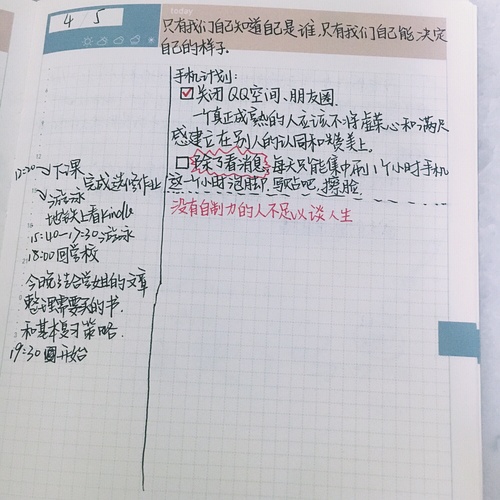 today
4/5
只有我们自己知道自己是谁,只有我们自己能决定
自己的样子.
手机计划:
☑关闭QQ空间、朋友圈.
一个真正成熟的人应该不将虚荣心和满足
感建立在别人的认同和赞美上.
□除了看消息,每天只能集中刷1个小时手机
这一个小时泡脚,
擦脸
没有自制力的人不足以谈人生
12:30~下课
完成选修作业
游泳
地铁上看Kindle
15:40-17:30游泳
18:00回学校
今晚结合学姐的文章
整理需要买的书
和基本复习策略.
19:30开始